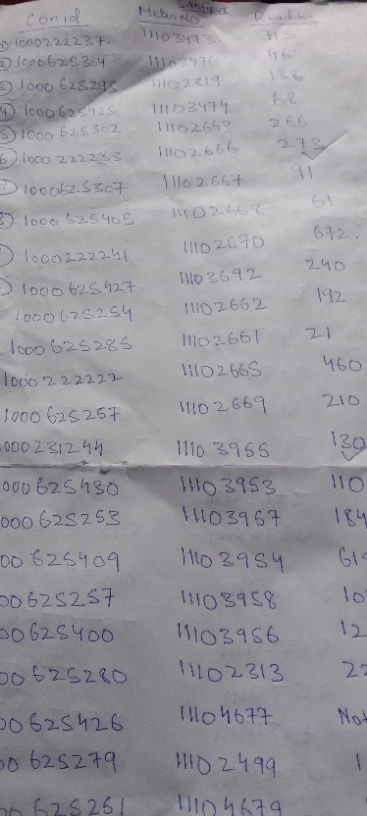 Conid Meter No Santipur Reading
① 1000222237. 11103973
② 1000625364 11103976 46
③ 1000625295 11102819 138
④ 1000625425 11103974 68
⑤ 1000 625302 11102663 266
⑥ 1000 222233 11102666 273
⑦ 1000625367 11102667 91
⑧ 1000 625405 11102668 61
1000222241 11102670 672.
1000 625427 11103692 240
1000625254 11102662 192
1000 625285 11102661 21
1000 222222 11102665 460
1000 625257 11102669 210
000231244 11103955 130
000 625430 11103953 110
000 625253 11103967 184
00 625409 11103954 619
00 625257 11103958 10
00 625400 11103956 12
00 625280 11102313 22
00 625426 11104677 Not
00 625279 11102499 1
00 625251 11104679